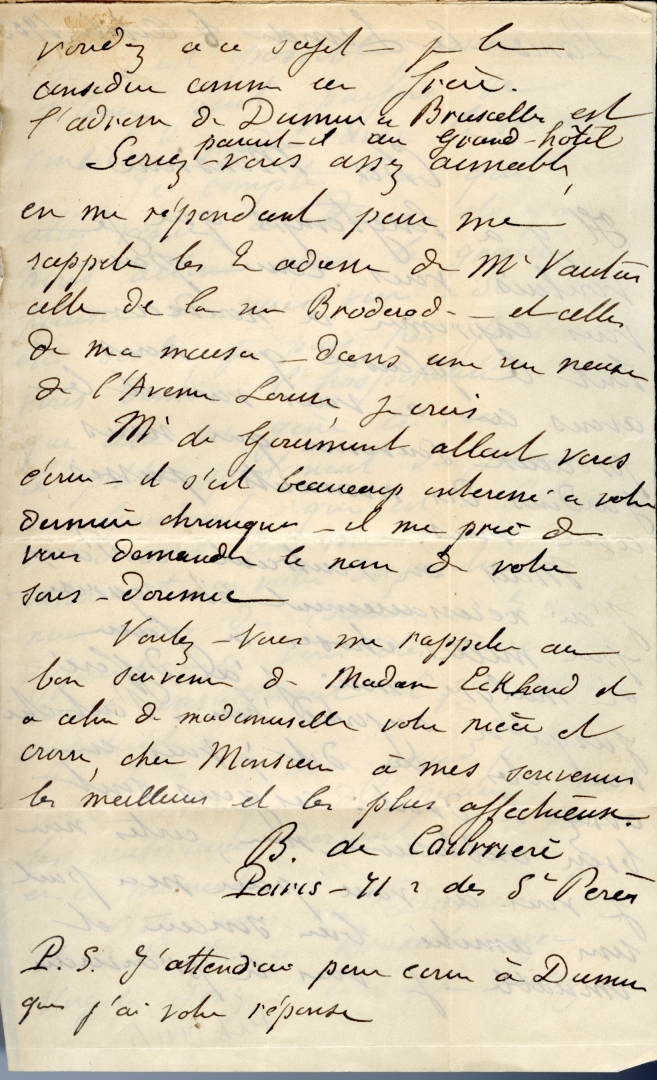 voudrez à ce sujet – je le
considère comme un frère.
l'adresse de Dumur à Bruxelles est
paraît-il au Grand-hôtel
Seriez-vous assez aimable,
en me répondant pour me
rappeler les 2 adresses de Mr
celle de la rue Broderod – et celle
de ma – dans une rue neuve
de l'Avenue Louise je crois
Mr de Gourmont allait vous
écrire – il s'est beaucoup interessé à votre
dernière chronique – il me prie de
vous demander le nom de votre
sous-Doumic
Voulez-vous me rappeler au
bon souvenir de Madame Eckhoud et
a celui de mademoiselle votre nièce et
croire, cher Monsieur à mes souvenirs
les meilleurs et les plus affectueux.
B. de Courrière
Paris – 71 r des Sts Pères
P.S. J'attendrai pour écrire à Dumur
que j'ai votre réponse